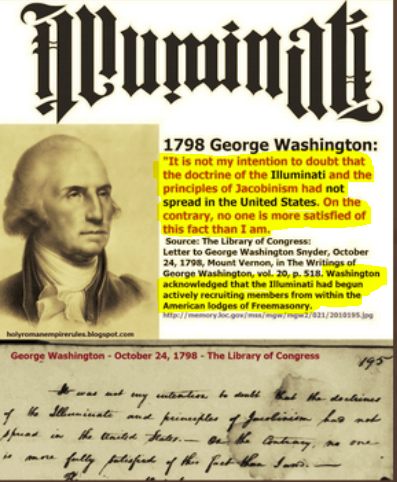 Illuminati
1798 George Washington:
"It is not my intention to doubt that
the doctrine of the Illuminati and the
principles of Jacobinism had not
spread in the United States. On the
contrary, no one is more satisfied of
this fact than I am.
Source: The Library of Congress:
Letter to George Washington Snyder, October
24, 1798, Mount Vernon, in The Writings of
George Washington, vol. 20, p. 518. Washington
acknowledged that the Illuminati had begun
actively recruiting members from within the
American lodges of Freemasonry.
http://memory.loc.gov/mss/mgw/mgw2/021/2010195.jpg
holyromanempirerules.blogspot.com
George Washington - October 24, 1798 - The Library of Congress
195
It was not my intention to doubt that the doctrines
of the Illuminati and principles of Jacobinism had not
spread in the United States. — On the Contrary, no one
is more fully satisfied of this fact than I am. —